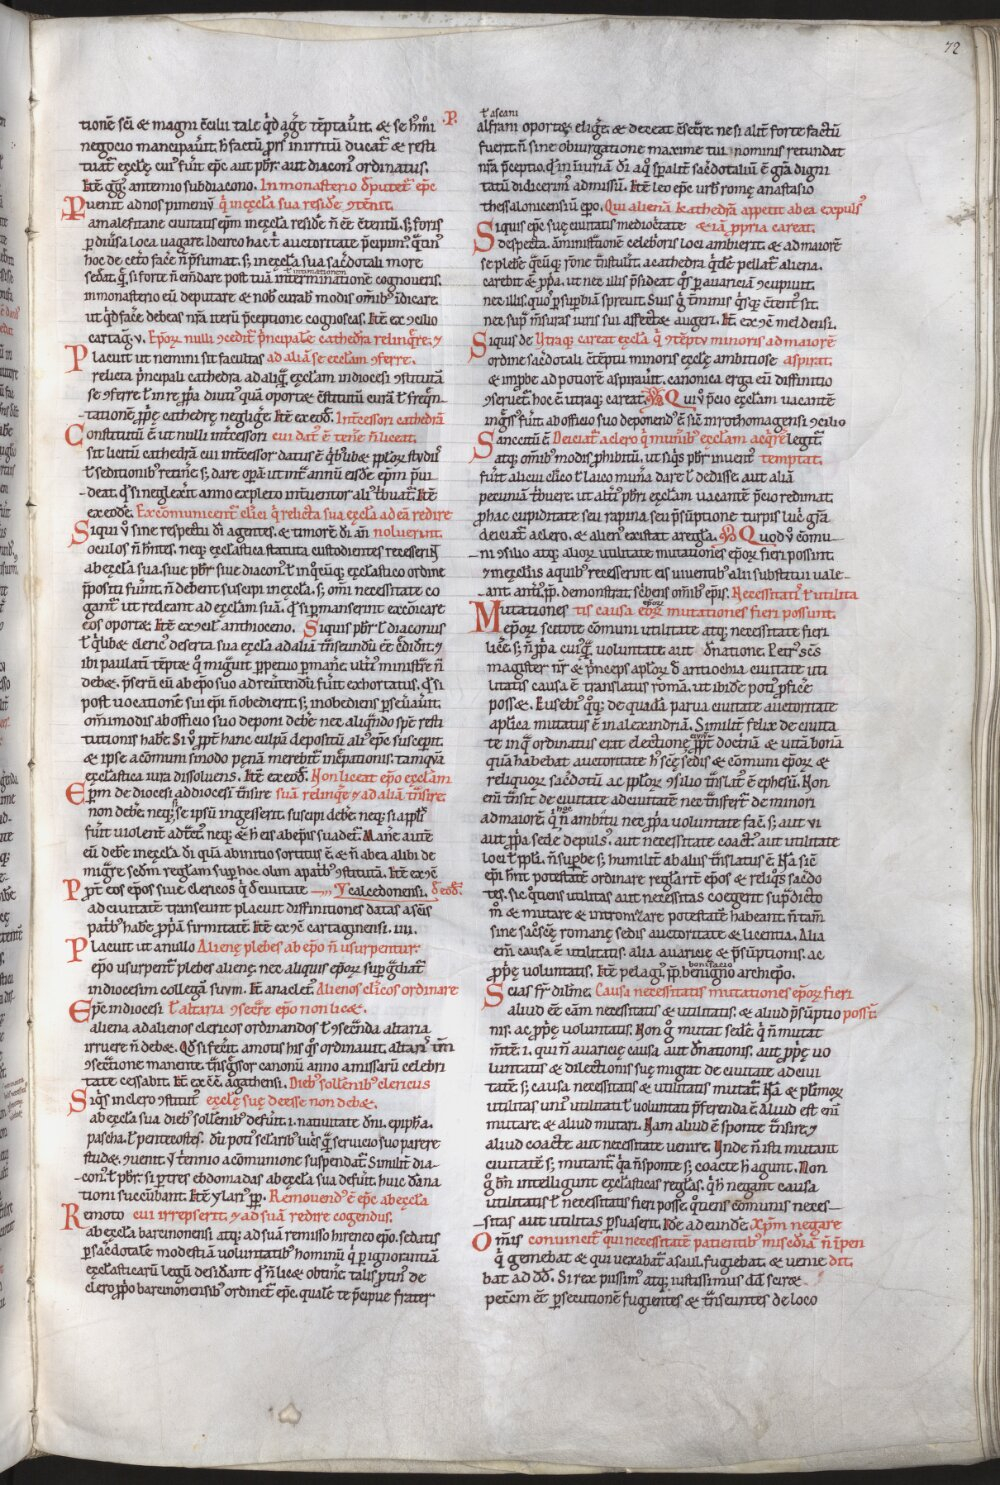 72
tionē sc̄i & magni c̄cilii tale qd̄ agere tēptauit. & se hmōi
negocio mancipauit. h̄ factū prs' inirritū ducat̄ & resti
tuat̄ ęxcl̄ę, cui' fuit ep̄c aut pb̄r. aut diacon' ordinatus.
Itē gg̅. antemio subdiacono. In monasterio dputet̄ ep̄c
Puenit ad nos pimeniū q̇ inęxcl̄a sua residē ꝯtēnit.
amalefitane ciuitatis ep̄m inęxcl̄a residē n̄ ēē c̄tentū. s; foris
p diūsa loca uagare. Idcirco hac t̄ auctoritate p̄cipim'. q̄tin'
hoc de cetō facē n̄ p̄sumat. s; inęxcl̄a sua sac̄dotali more
sedat. q̇ si forte n̄ em̄dare post tuā īnterminationē cognoueris.
ł intimationem
inmonasterio eū deputare & nob̄ curab̄ modis om̄ib' īdicare.
ut qd̄ facē debeas nr̄a iterū p̄ceptione cognoscas. Itē ex ꝯcilio
cartag̅. v. Ep̄or. nulli ꝯcedit̄ p̄ncipalē cathedrā relinq̄re. ⁊
Placuit ut nemini sit facultas ad aliā se ęcclam ꝯferre.
relicta p̄ncipali cathedra ad aliq̄ ęxcl̄am indiocesi ꝯstitutā
se ꝯferre ł in re pp̄a diuti' quā oportet ꝯstitutū curā ł freq̄n
tationē pp̄ę cathedrę negligē. Itē ex eod̄. Int̄cessori cathedrā
Constitutū ē ut nulli int̄cessori cui dat' ē tenē n̄ liceat.
sit licitū cathedrā cui int̄cessor datus ē q̇b'libet pp̄lor. studiis
ł seditionib' retinē. s; dare opā ut int̄ annū eisdē ep̄m p̄ui
deat. q̇ si neglexit anno expleto int̄uentor ali' t̄buat̄. Itē
ex eodē. Excōmunicent̄ cl̄ici q̇ relicta sua ęxcl̄a ad eā redire
Siqui v̄ sine respectu dī agentes. & timorē dī an̄ noluerint.
oculos n̄ h̄ntes. neq; ęxcl̄astica statuta custodientes recesserīt
ab ęxcl̄a sua. siue pb̄r siue diacon' ł inq̇cūq; ęxcl̄astico ordine
p̄positi fuint̄. n̄ debent suscipi inęxcl̄a. s; om̄i necessitate co
gant̄ ut redeant ad ęxcl̄am suā. q̇ si p̄manserint excōicare
eos oportet. Itē ex ꝯcil' anthioceno. Siquis pb̄r ł diaconus
ł q̇libet cleric' deserta sua ęxcl̄a ad aliā t̄nseundū
ibi paulatī tēptet q̇ migrauit ppetuo pmanē. ult̄i' ministrare n̄
debet. p̄serti cū ab ep̄o suo ad reūtendū fuit exhortatus. q̇ si
post uocationē sui ep̄i n̄ obedierit. s; inobediens p̄seuāuit.
om̄imodis ab officio suo deponi debere. nec aliqn̄do spē resti
tutionis habē. Si v̄ pp̄t hanc culpā depositū ali' ep̄c suscepit.
& ipse a cōmuni sinodo penā merebit̄ incr̄pationis. tamquā
ęxcl̄astica iura dissoluens. Itē ex eod̄. Non liceat ep̄o ęxcl̄am
Ep̄m de diocesi ad diocesi t̄nsire suā relinq̄re & ad aliā t̄nsire.
non debē. neq; si se ipsū ingesserit. suscipi debē. neq; si a pp̄lis
fuit uiolent̄ adt̄ct'. neq; & h̄ eis ab ep̄is suadet̄. Manē autē
eū debē inęxcl̄a dī quā ab initio sortitus ē. & n̄ ab ea alibi de
migrē scdm̄ reglam sup hoc olim a pat̄b' ꝯstitutā. Itē ex ꝯc̄
Pp̄t eos ep̄os siue clericos q̇ d̄ ciuitate calcedonensi. d̄ eod̄.
ad ciuitatē transeunt placuit diffinitiones datas a sc̄is
pat̄b' habē pp̄iā firmitatē. Itē ex ꝯc̄ cartaginensi. iiii.
Placuit ut a nullo Alienę plebes ab ep̄o n̄ usurpentur.
ep̄o usurpent̄ plebes alienę. nec aliquis ep̄or. supgdiat̄
indiocesim collegę suum. Itē anaclet'. Alienos cl̄icos ordinare
Ep̄c indiocesi ł altaria ꝯsecr̄re ep̄o non licet.
aliena ad alienos clericos ordinandos ł ꝯsecr̄nda altaria
irruere n̄ debet. Qđ si fec̄it. amotis his q̄s ordinauit. altaris tn̄
ꝯsectione manente. t̄nsgssor canonū anno a missarū celebri
tate cessabit. Itē ex c̄c̄. agathensi. Dieb' sollēnib' clericus
Siq̇s inclero ꝯstitut' ęxcl̄ę suę deesse non debet.
ab ęxcl̄a sua dieb' sollēnib' defuit. i. natiuitate dn̄i. epiph̄a.
pascha. ł pentecostes. dū poti' sclarib' lucis q̄ seruicio suo parere
studet. ꝯuenit v̄ t̄ennio a cōmunione suspendat̄. Similit̄ dia
con' ł pb̄r. si p tres ebdomadas ab ęxcl̄a sua defuit. huic dāna
tioni succūbant. Itē ylari' pp̄. Remouend' ē ep̄c ab ęxcl̄a
Remoto cui irrepserit. & ad suā redire cogendus.
ab ęxcl̄a barcinonensi atq; ad suā remisso hireneo ep̄o. sedatis
p sac̄dotalē modestiā uoluntatib' hominū q̇ p ignorantiā
ęxcl̄asticarū legū desid̄ant q̇ n̄ licet obtinē. talis ptin' de
clero pp̄o barcinonensib' ordinet̄ ep̄c. qualē te p̄cipue frater
ł ascani
alfrani oporteat eligē. & deceat c̄secr̄e. ne si alit̄ forte factū
fuerit. n̄ sine obiurgatione maxime tui nominis retundat
nr̄a p̄ceptio. q̇ in iniuriā dī a q̇ sp̄alit̄ sac̄dotaliū ē gr̄a digni
tatū didicerim' admissū. Itē leo ep̄c urb' romę anastasio
thessalonicensiū ep̄o. Qui alienā kathedrā appetit ab ea expuls'
Siquis ep̄c suę ciuitatis mediocritate & iā ppria careat.
despecta. āministr̄tionē celebrioris loci ambierit. & ad maiorē
se plebē q̄cūq; rōne t̄nstulit. a cathedra q̇dē pellat̄ aliena.
carebit & pp̄a. ut nec illis p̄sideat q̄s p auariciā ꝯcupiuit.
nec illis. quos p supbiā spreuit. Suis ḡ t̄minis q̇sq; c̄tent' sit.
nec sup̄ m̄suras iuris sui affectet augeri. Itē. ex ꝯc̄ meldensi.
Siquis de Vtraq; careat ęxcl̄a q̇ ꝯtēptu minoris ad maiorē
ordine sac̄dotali c̄tēptu minoris ęxcl̄ę ambitiose aspirat.
& imp̄be ad potiorē aspirauit. canonica erga eū diffinitio
ꝯseruet̄. hoc ē utraq; careat. Qui v̄ p̄cio ęxcl̄am uacantē
ingr̄ss' fuit. ab officio suo deponend' ē sic in rothomagensi ꝯcilio
Sancctū ē. Deiciat̄ a clero q̇ munib' ęxcl̄am acq̇rē
legit̄.
atq; om̄ib' modis phibitū. ut siq̇s pb̄r inuent' temptat.
fuit alicui cl̄ico ł laico munā dare ł dedisse. aut aliā
pecuniā t̄buere. ut alt̄i' pb̄ri ęxcl̄am uacantē p̄cio redimat.
p hac cupiditate seu rapina seu p̄sūptione turpis lucri gr̄a
deiciat̄ a clero. & alien' existat a regl̄a. Quod v̄ cōmu
ni ꝯsilio atq; alior. utilitate mutationes ep̄or. fieri possint.
⁊ inęxcl̄iis a quib' recesserint eis uiuentib' alii substitui uale
ant. anti' pp̄. demonstrat sc̄bens om̄ib' ep̄is. Necessitatis ł utilita
Mutationes tis causa ep̄or. mutationes fieri possunt.
ep̄or. scitote cōmuni utilitate atq; necessitate fieri
licē. s; n̄ pp̄a cui'q; uoluntate. aut d̄natione. Petr' sc̄s
magister nr̄ & p̄nceps apl̄or. d̄ antiochia ciuitate uti
litatis causa ē translatus romā. ut ibidē poti' pficē
posset. Eusebi' q̇q; de quadā parua ciuitate auctoritate
apl̄ica mutatus ē in alexandriā. Similit̄ felix de ciuita
te in q̇ ordinatus erat electione ciuiū pp̄t docr̄inā & uitā bonā
quā habebat auctoritate h' sc̄ę sedis & cōmuni ep̄or. &
reliquor. sac̄dotū ac pp̄lor. ꝯsilio t̄nslat' ē ephesū. Non
eni t̄nsit de ciuitate ad ciuitatē nec t̄nsfert̄ de minori
ad maiorē. q̇ hoc n̄ ambitu nec pp̄a uoluntate fac̄. s; aut vi
aut pp̄a sede depuls'. aut necessitate coact'. aut utilitate
loci ł pp̄li. n̄ supbe s; humilit̄ ab aliis t̄nslatus ē. Nā sic̄
ep̄i h̄nt potestatē ordinare regl̄arit̄ ep̄os & reliq̄s sac̄do
tes. sic quotiens utilitas aut necessitas coegerit sup̄dicto
m̄ & mutare & intronizare potestatē habeant. n̄ tam̄
sine sac̄sc̄ę romanę sedis auctoritate & licentia. Alia
eni causa ē utilitatis. alia auaricię & p̄sūptionis. ac
pp̄ę voluntatis. Itē pelagi' pp̄. benigno archiep̄o.
bonifacio
Scias fr̄ dilm̄e. Causa necessitatis mutationes ep̄or. fieri
aliud ēē cām necessitatis & utilitatis. & aliud p̄sūptio possūt.
nis. ac pp̄ę voluntatis. Non ḡ mutat sedē. q̇ n̄ mutat
m̄tē. i. qui n̄ auaricię causa aut d̄nationis. aut pp̄ę uo
luntatis & dilectionis suę migrat de ciuitate ad ciui
tatē. s; causa necessitatis & utilitatis mutat̄. Nā & plimor.
utilitas uni' utilitati ł voluntati p̄ferenda ē. Aliud est eni
mutare. & aliud mutari. Nam aliud ē sponte t̄nsire. ⁊
aliud coacte aut necessitate uenire. Vnde n̄ isti mutant
ciuitatē s; mutant̄. q̇a n̄ sponte s; coacte h̄ agunt. Non
ḡ bn̄ intelligunt ęxcl̄asticas reglas. q̇ h̄ negant causa
utilitatis ł necessitatis fieri posse. q̇ens cōmunis neces
sitas aut utilitas psuaserit. Idē ad eundē. Xp̄m negare
Om̄is conuincit̄ qui necessitatē patientib' misc̄diā n̄ īpen
q̇ gemebat & qui uexabat̄ a saul. fugiebat. & uenie dit.
bat ad dd̄. Si rex piissim' atq; iustissimus dd̄ scire
pec̄cm eē. psecutionē fugientes & t̄nseuntes de loco